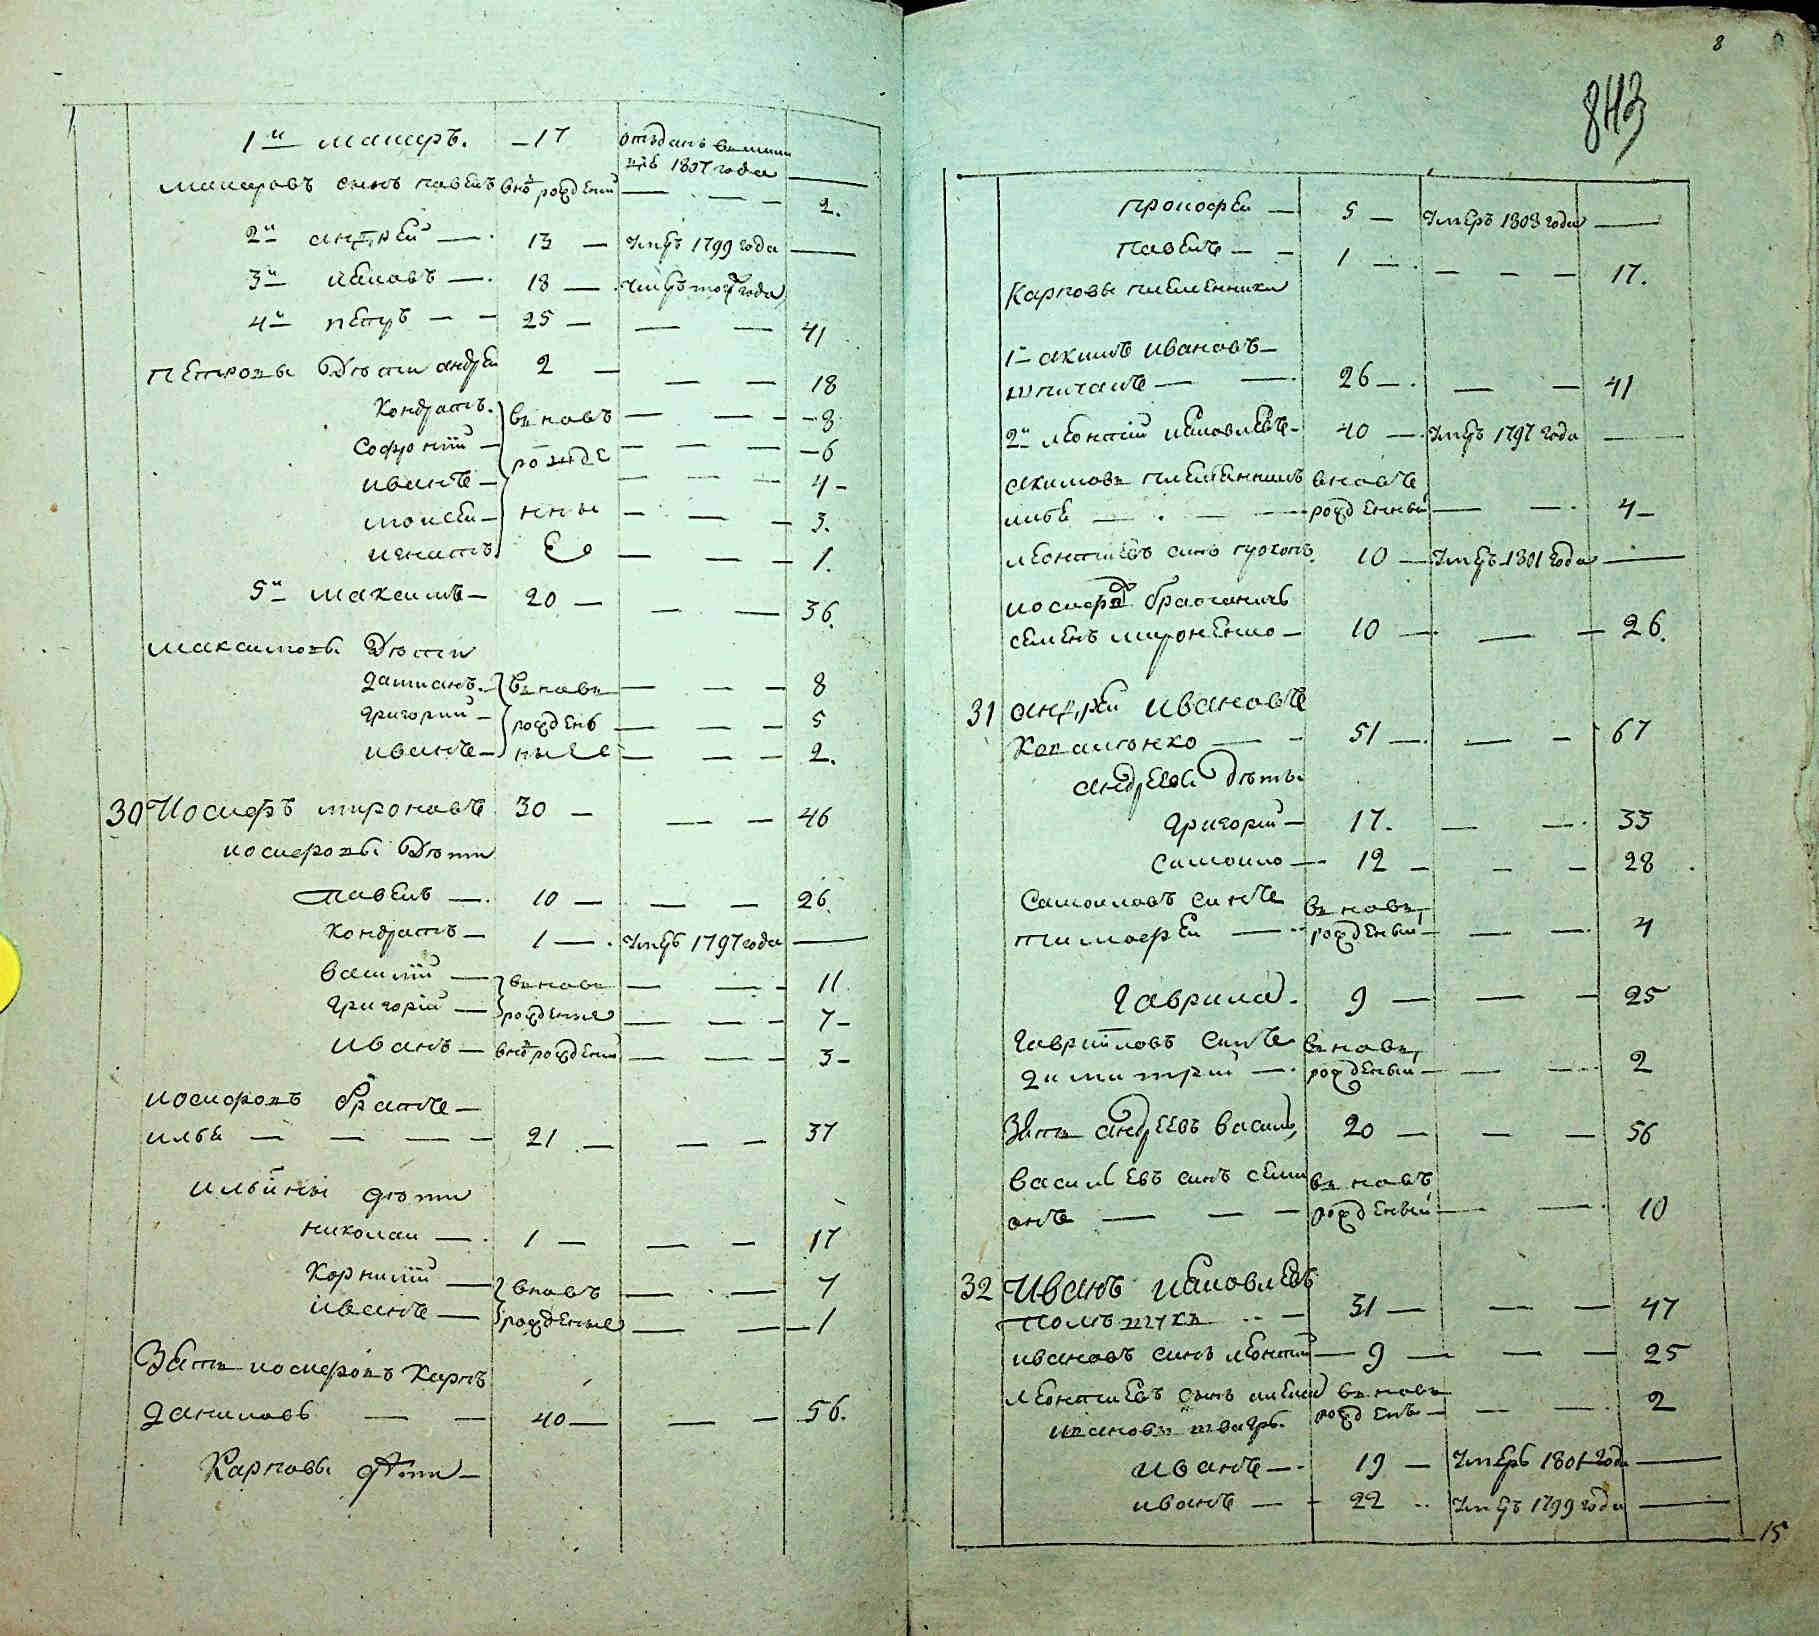 1й макаръ. 17 отъданъ
1807 года
макаровъ сынъ павелъ рожденый 2.
2й андрей 13 умеръ 1799 года
3й яковъ 18 года
4й петръ 25 41
петровы дѣти андрей 2 18
кондратъ вновь 8
софроний рожде 6
иванъ 4
моисей нны 3.
игнатъ е 1.
5й максимъ 20 36.
максимовы дѣти
дамианъ вновь 8
григорий рожден 5
иванъ ные 2.
30 Иосифъ мироновъ 30 46
иосифовы дѣти
павелъ 10 26
кондратъ 1 умеръ 1797 года
василий вновь 11
григорий рожденые 7
иванъ рожденый 3
иосифовъ братъ
илья 21 37
ильины дѣти
николаи 1 17
корнилий вновь 7
иванъ рожденые 1
Зять иосифовъ карпъ
даниловъ 40 56.
Карповы дѣти
8
843
прокофеи 5 умеръ 1808 года
павелъ 1 17.
Карповы племенники
1й акимъ ивановъ
26 41
2й леонтий яковлевъ 40 умеръ 1797 года
акимовъ племенникъ вновь
рожденный 4
леонтиевъ сынъ 10 умеръ 1801 года
семенъ мироненко 10 26.
31 андрей ивановъ
51 67
андреевы дѣти
григорий 17. 33
самоило 12 28
самоиловъ сынъ вновь
тимофеи рожденый 4
гаврила 9 25
гавриловъ сынъ вновь
димитрий рожденый 2
Зять андреевъ василь 20 56
васильевъ синъ семи вновь
онъ рожденый 10
32 Иванъ яковлевъ
31 47
ивановъ синъ леонтий 9 25
леонтиевъ сынъ вновь 2
ивановы рожденъ
иванъ 19 умеръ 1801 года
иванъ 22 умеръ 1799 года
15